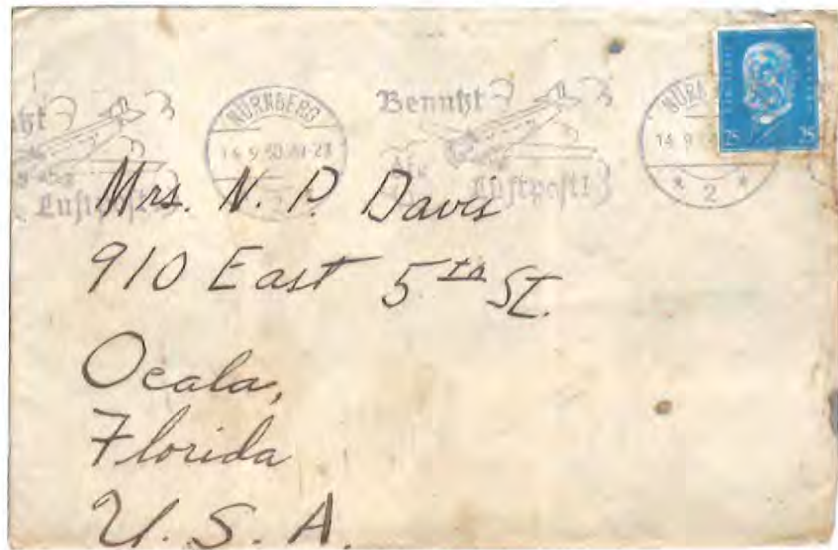 NÜRNBERG
14.9.30.20-21
2
Benutzt
die
Luftpost!
NÜR
14.9
* 2 *
25 25
utzt
Luftpost
Mrs. N. P. Davis
910 East 5th St.
Ocala,
Florida
U.S.A.